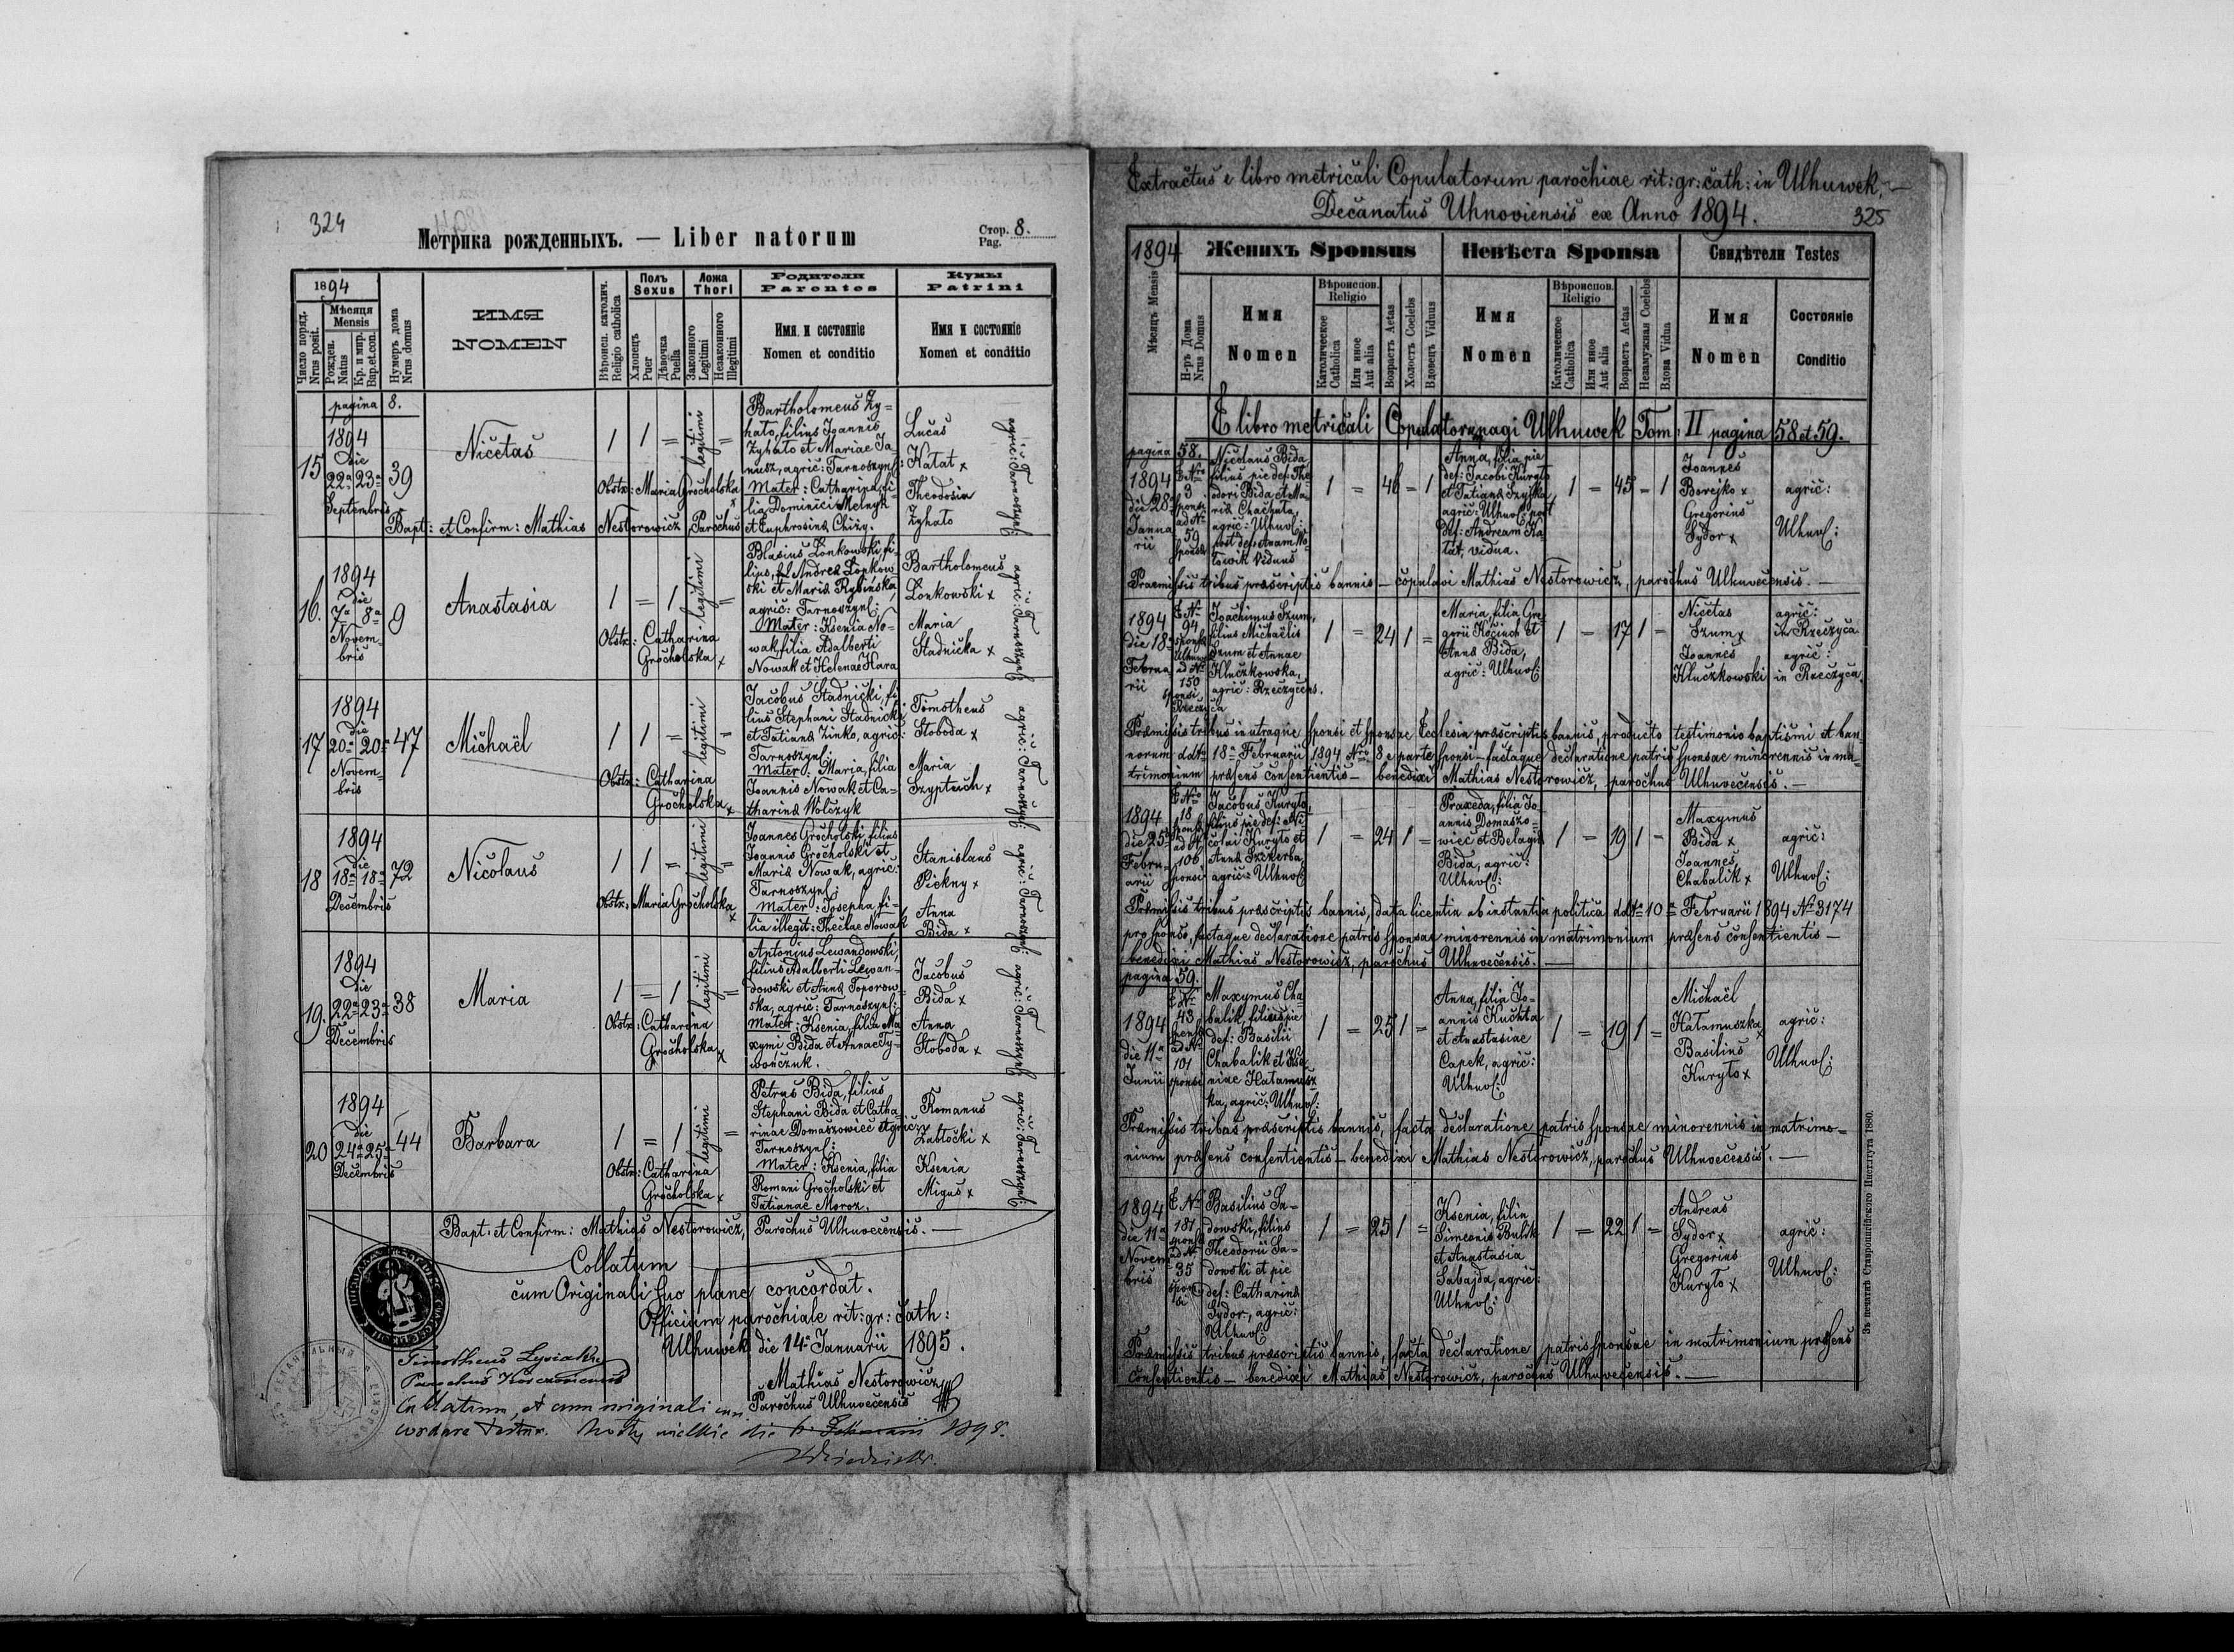 324
Метрика рожденныхъ. — Liber natorum
Стор. Pag. 8.
1894
Число поряд. Nrus posit.
Мѣсяця Mensis
Рожден. Natus
Кр. и мир. Bap. et con.
Нумеръ дома Nrus domus
ИМЯ
NOMEN
Вѣроисп. католич. Religio catholica
Полъ Sexus
Хлопецъ Puer
Дѣвочка Puella
Ложа Thori
Законного Legitimi
Незаконного Illegitimi
Родители
Parentes
Имя и состояніе
Nomen et conditio
Кумы
Patrini
Имя и состояніе
Nomen et conditio
pagina 8.
15
1894
die
22a 23a
Septembris
39
Nicetas
1 1 = legitimi =
Obstx: Maria Grocholska x
Bartholomeus Zy=
hato, filius Joannis
Zyhato et Mariae Ja=
nusz, agric: Tarnoszyns:
Mater: Catharina, fi=
lia Dominici Melnyk
et Euphrosina Chiży.
Lucas
Hatat x
Theodosia
Zyhato
agric: Tarnoszyns:
Bapt: et Confirm: Mathias Nestorowicz, Parochus
16.
1894
die
7a 8a
Novem=
bris
9
Anastasia
1 = 1 legitimi =
Obstx: Catharina
Grocholska x
Blasius Łonkowski, fi=
lius Andrea Łonkow
ski et Maria Rybińska,
agric: Tarnoszyns:
Mater: Ksenia No=
wak, filia Adalberti
Nowak et Helenae Hara
Bartholomeus
Łonkowski x
Maria
Stadnicka x
agric: Tarnoszyns:
17
1894
die
20a 20a
Novem=
bris
47
Michaël
1 1 = legitimi =
Obstx: Catharina
Grocholska x
Jacobus Stadnicki, fi
lius Stephani Stadnicki
et Tatiana Zinko, agric:
Tarnoszyns:
Mater: Maria, filia
Joannis Nowak et Ca=
tharina Wolczyk
Timotheus
Słoboda x
Maria
Szyptuch x
agric: Tarnoszyns:
18
1894
die
18a 18a
Decembris
72
Nicolaus
1 1 = legitimi =
Obstx: Maria Grocholska x
Joannes Grocholski, filius
Joannis Grocholski et
Maria Nowak, agric:
Tarnoszyns:
Mater: Josepha, fi=
lia illegit: Theclae Nowak
Stanislaus
Piekny x
Anna
Bida x
agric: Tarnoszyns:
19.
1894
die
22a 23a
Decembris
38
Maria
1 = 1 legitimi =
Obstx: Catharina
Grocholska x
Antonius Lewandowski,
filius Adalberti Lewan=
dowski et Anna Toporow=
ska, agric: Tarnoszyns:
Mater: Ksenia, filia Ma
xymi Bida et Annae Ty=
wończuk.
Jacobus
Bida x
Anna
Słoboda x
agric: Tarnoszyns:
20
1894
die
24a 25a
Decembris
44
Barbara
1 = 1 legitimi =
Obstx: Catharina
Grocholska x
Petrus Bida, filius
Stephani Bida et Catha=
rinae Domaszowiec agric:
Tarnoszyns:
Mater: Ksenia, filia
Romani Grocholski et
Tatianae Moroz.
Romanus
Zabłocki x
Ksenia
Migus x
agric: Tarnoszyns:
Bapt: et Confirm: Mathias Nestorowicz, Parochus Ulhuvecensis. —
Collatum
cum Originali suo plane concordat.
Officium parochiale rit: gr: Cath:
Ulhuwek die 14a Januarii 1895.
Mathias Nestorowicz
Parochus Ulhuvecensis
Timotheus
Parochus
Collatum, et cum originali con
cordare testor. Mosty wielkie die 6 Februarii 1895.
Extractus e libro metricali Copulatorum parochiae rit: gr: cath: in Ulhuwek, —
Decanatus Uhnoviensis ex Anno 1894.
325
1894
Мѣсяць Mensis
Женихъ Sponsus
Невѣста Sponsa
Свидѣтели Testes
Н-ръ Дома Nrus Domus
Имя
Nomen
Вѣроиспов. Religio
Католическое Catholica
Или иное Aut alia
Возрастъ Aetas
Холостъ Coelebs
Вдовецъ Viduus
Имя
Nomen
Вѣроиспов. Religio
Католическое Catholica
Или иное Aut alia
Возрастъ Aetas
Незамужная Coelebs
Вдова Vidua
Имя
Nomen
Состояніе
Conditio
E libro metricali Copulatorum pagi Ulhuwek Tom: II pagina 58 et 59.
pagina 58.
1894
die 28a
Janua
rii
E No
3
sponsi
ad No
59
sponsa
Nicolaus Bida
filius pie def: The
odori Bida et Ma
ria Chachuta,
agric: Ulhuv:
post def: Annam Wo
towik viduus
1 = 46 - 1
Anna, filia pie
def: Jacobi Kuryto
et Tatiana Szyjka
agric: Ulhuv: post
def: Andream Ha
tat, vidua.
1 = 45 - 1
Joannes
Borejko x
Gregorius
Sydor x
agric:
Ulhuv:
Praemissis tribus praescriptis bannis — copulavi Mathias Nestorowicz, parochus Ulhuvecensis. —
1894
die 18a
Februa
rii
E No
94
sponsa
Ulhuv
ad No
150
sponsi
Rzeczyca
Joachimus Szum,
filius Michaëlis
Szum et Annae
Kluczkowska,
agric: Rzeczycens.
1 = 24 1 =
Maria, filia Gre=
gorii Kociuch et
Anna Bida,
agric: Ulhuv:
1 = 17 1 -
Nicetas
Szum x
Joannes
Kluczkowski
agric:
in Rzeczyca
agric:
in Rzeczyca.
Praemissis tribus in utraque sponsi et sponsae Ecclesia praescriptis bannis, producto testimonio baptismi et ban=
norum ddto 18a Februarii 1894 Nro 8 e parte sponsi — factaque declaratione patris sponsae minorennis in ma=
trimonium praesens consentientis — benedixi Mathias Nestorowicz, parochus Ulhuvecensis. —
1894
die 25a
Febru=
arii
E No
18
sponsa
ad No
106
sponsi
Jacobus Kuryto,
filius pie def: Ni=
colai Kuryto et
Anna Szckerba,
agric: Ulhuv:
1 = 24 1 =
Praxeda, filia Jo=
annis Domaszo=
wiec et Pelagia
Bida, agric:
Ulhuv:
1 = 19 1 -
Maxymus
Bida x
Joannes
Chabalik x
agric:
Ulhuv:
Praemissis tribus praescriptis bannis, data licentia ab instantia politica ddto 10a Februarii 1894 No 3174
pro sponso, factaque declaratione patris sponsae minorennis in matrimonium praesens consentientis —
benedixi Mathias Nestorowicz, parochus Ulhuvecensis. —
pagina 59.
1894
die 11a
Junii
E No
43
sponsa
ad No
101
sponsi
Maxymus Cha
balik, filius pie
def: Basilii
Chabalik et Kse
niae Hatamusz
ka, agric: Ulhuv:
1 = 25 1 =
Anna, filia Jo=
annis Kuchta
et Anastasiae
Capek, agric:
Ulhuv:
1 = 19 1 =
Michaël
Hatamuszka x
Basilius
Kuryto x
agric:
Ulhuv:
Praemissis tribus praescriptis bannis, facta declaratione patris sponsae minorennis in matrimo=
nium praesens consentientis — benedixi Mathias Nestorowicz, parochus Ulhuvecensis. —
1894
die 11a
Novem
bris
E No
181
sponsa
ad No
35
sponsi
Basilius Sa=
dowski, filius
Theodorii Sa=
dowski et pie
def: Catharina
Sydor, agric:
Ulhuv:
1 = 25 1 =
Ksenia, filia
Simeonis Bulik
et Anastasia
Sabajda, agric:
Ulhuv:
1 = 22 1 =
Andreas
Sydor x
Gregorius
Kuryto x
agric:
Ulhuv:
Praemissis tribus praescriptis bannis, facta declaratione patris sponsae in matrimonium praesens
consentientis — benedixi Mathias Nestorowicz, parochus Ulhuvecensis. —
Зъ печатнѣ Ставропигійского Института 1880.